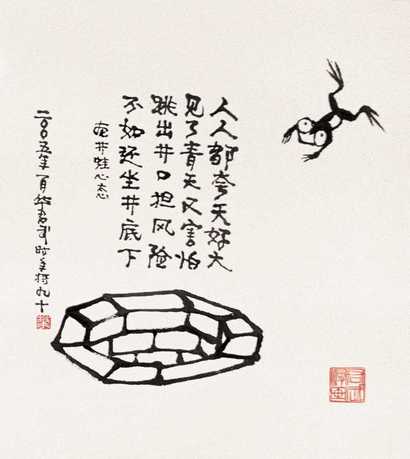 人人都夸天好大
见了青天又害怕
跳出井口担风险
不如还坐井底下
井蛙心态
二〇〇五年一月华君武时年将九十